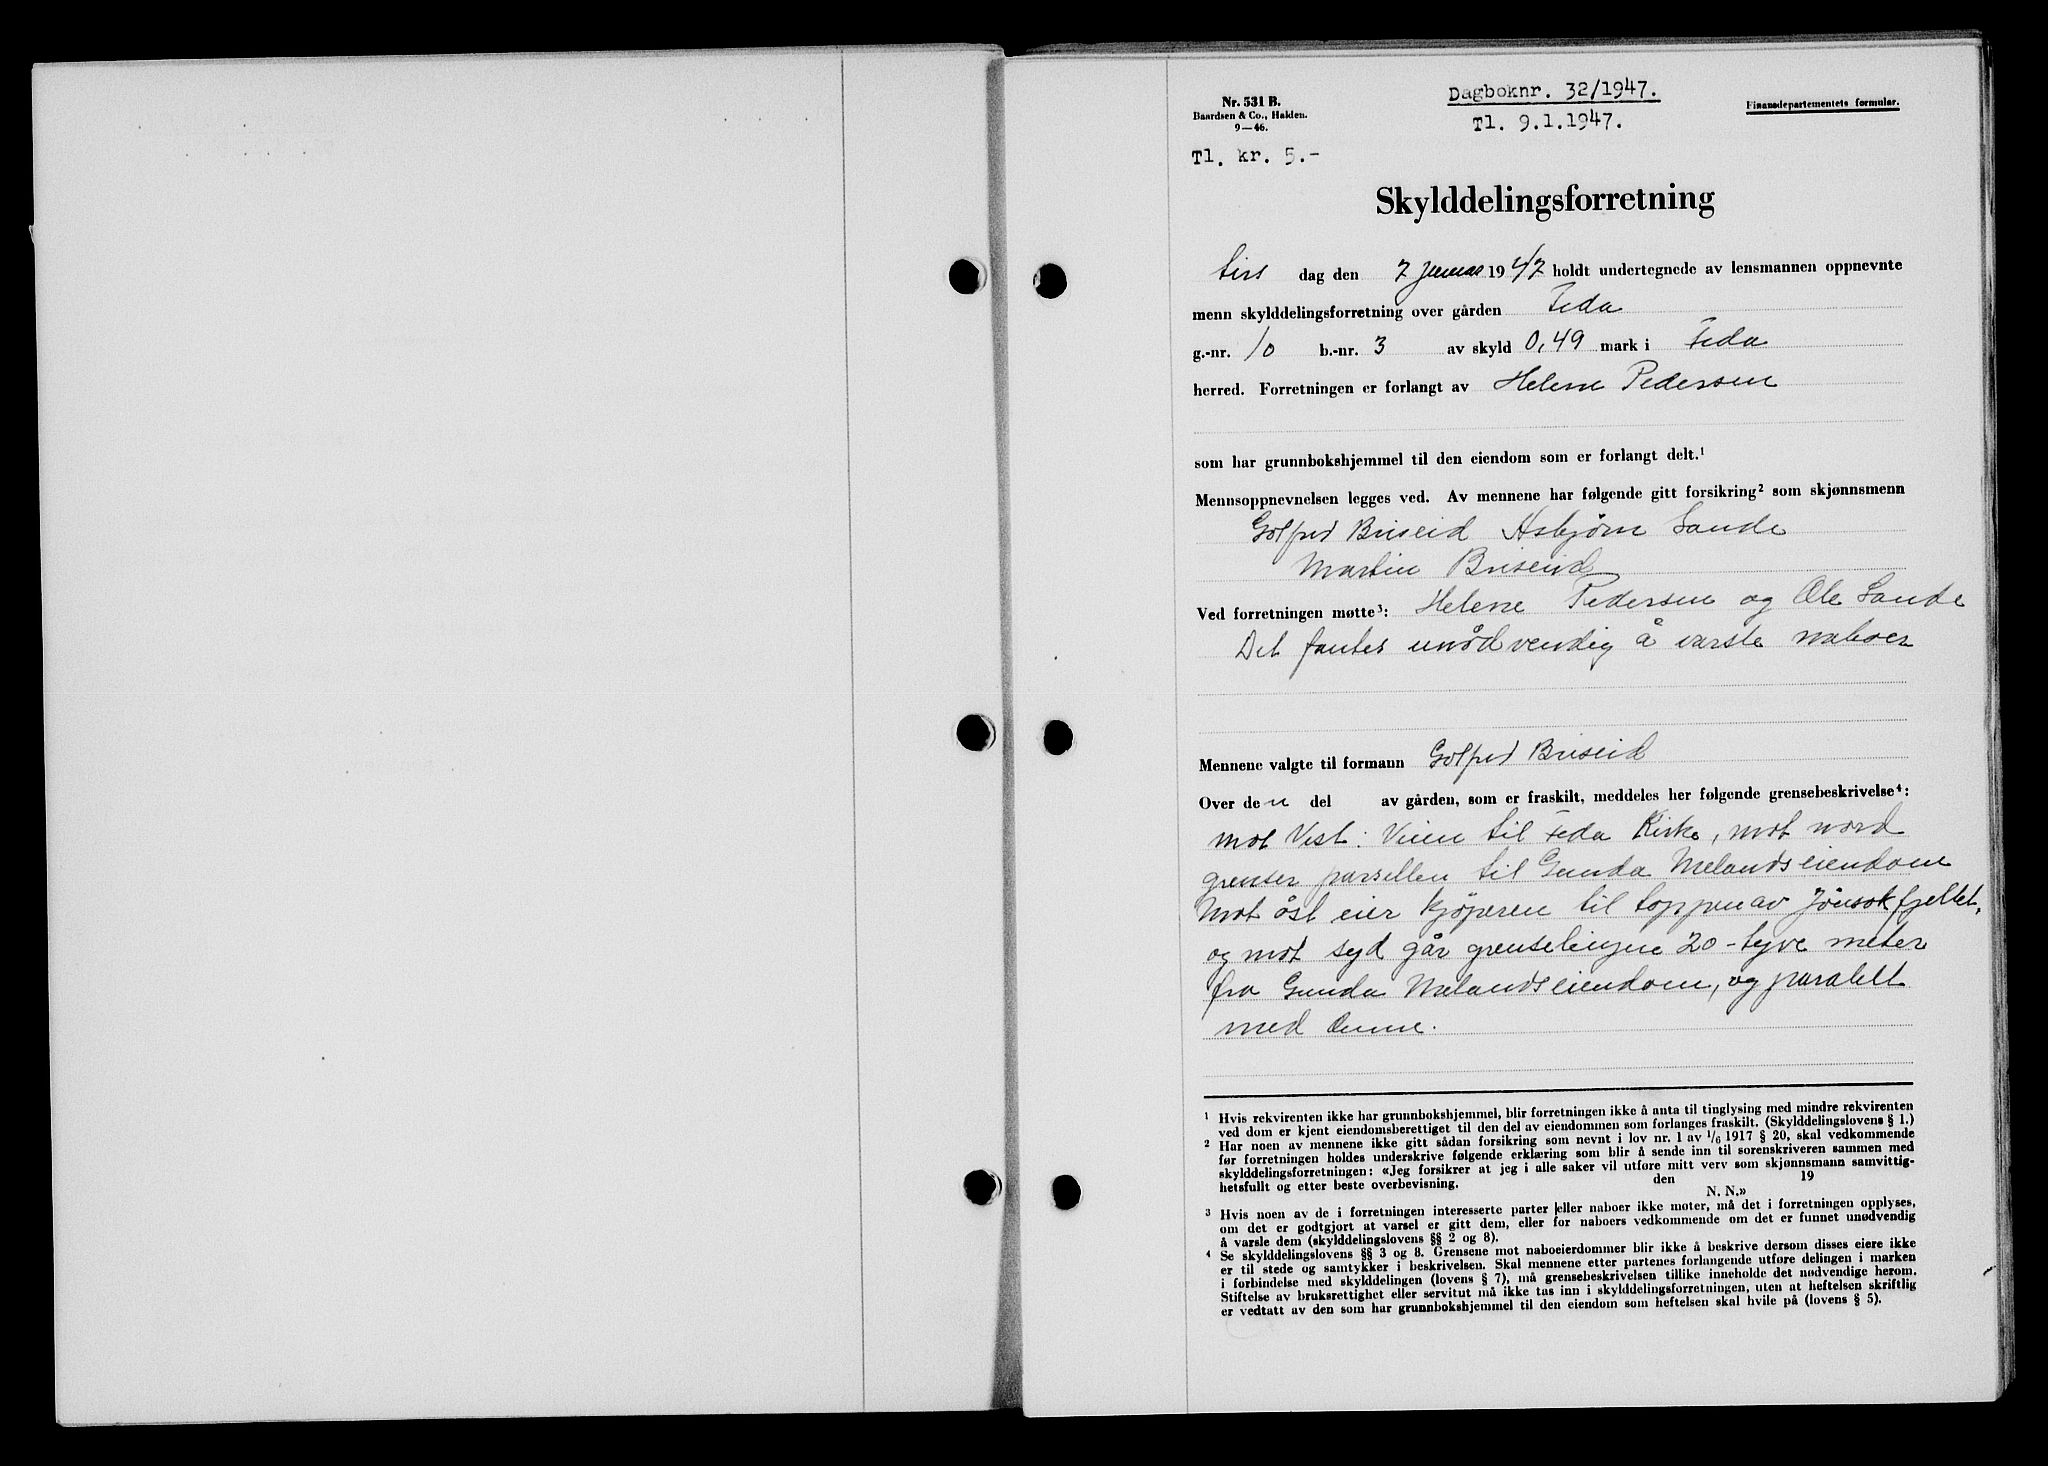 Nr. 531 B.
Baardsen & Co., Halden.
9—46.
Dagboknr. 32/1947.
Tl. 9.1.1947.
Finansdepartementets formular.
Tl. kr. 5.-
Skylddelingsforretning
tirs dag den 7 januar 1947 holdt undertegnede av lensmannen oppnevnte
menn skylddelingsforretning over gården Feda
g.-nr. 10 b.-nr. 3 av skyld 0,49 mark i Feda
herred. Forretningen er forlangt av Helene Pedersen
som har grunnbokshjemmel til den eiendom som er forlangt delt.¹
Mennsoppnevnelsen legges ved. Av mennene har følgende gitt forsikring² som skjønnsmenn
Golfred Briseid Asbjørn Sande
Martin Briseid
Ved forretningen møtte³: Helene Pedersen og Ole Sande
Det fantes unødvendig å varsle naboer
Mennene valgte til formann Golfred Briseid
Over den del av gården, som er fraskilt, meddeles her følgende grensebeskrivelse⁴:
mot Vest: Veien til Feda Kirke, mot nord
grenser parsellen til Gunda Melands eiendom
Mot øst eier kjøperen til toppen av Jönsokfjellet,
og mot syd går grenselinjen 20-tyve meter
fra Gunda Melands eiendom, og paralelt
med denne.
¹ Hvis rekvirenten ikke har grunnbokshjemmel, blir forretningen ikke å anta til tinglysing med mindre rekvirenten
ved dom er kjent eiendomsberettiget til den del av eiendommen som forlanges fraskilt. (Skylddelingslovens § 1.)
² Har noen av mennene ikke gitt sådan forsikring som nevnt i lov nr. 1 av 1/6 1917 § 20, skal vedkommende
før forretningen holdes underskrive følgende erklæring som blir å sende inn til sorenskriveren sammen med
skylddelingsforretningen: «Jeg forsikrer at jeg i alle saker vil utføre mitt verv som skjønnsmann samvittig-
hetsfullt og etter beste overbevisning. den 19
N. N.»
³ Hvis noen av de i forretningen interesserte parter eller naboer ikke møter, må det i forretningen opplyses,
om det er godtgjort at varsel er gitt dem, eller for naboers vedkommende om det er funnet unødvendig
å varsle dem (skylddelingslovens §§ 2 og 8).
⁴ Se skylddelingslovens §§ 3 og 8. Grensene mot naboeierdommer blir ikke å beskrive dersom disses eiere ikke
er til stede og samtykker i beskrivelsen. Skal mennene etter partenes forlangende utføre delingen i marken
i forbindelse med skylddelingen (lovens § 7), må grensebeskrivelsen tillike inneholde det nødvendige herom.
Stiftelse av bruksrettighet eller servitut må ikke tas inn i skylddelingsforretningen, uten at heftelsen skriftlig
er vedtatt av den som har grunnbokshjemmel til den eiendom som heftelsen skal hvile på (lovens § 5).